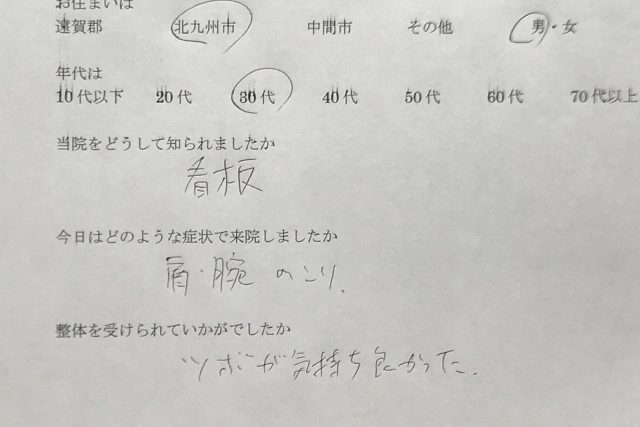 お住まいは
遠賀郡 北九州市 中間市 その他 男・女
年代は
10代以下 20代 30代 40代 50代 60代 70代以上
当院をどうして知られましたか
看板
今日はどのような症状で来院しましたか
肩・腕のこり、
整体を受けられていかがでしたか
ツボが気持ち良かった.